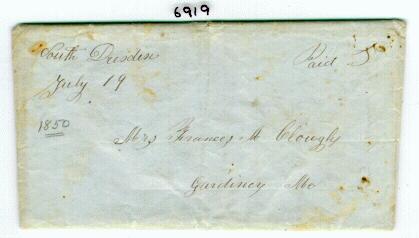 6919
South Dresden Paid 5
July 19
1850
Mrs Frances M Clough
Gardiner Me